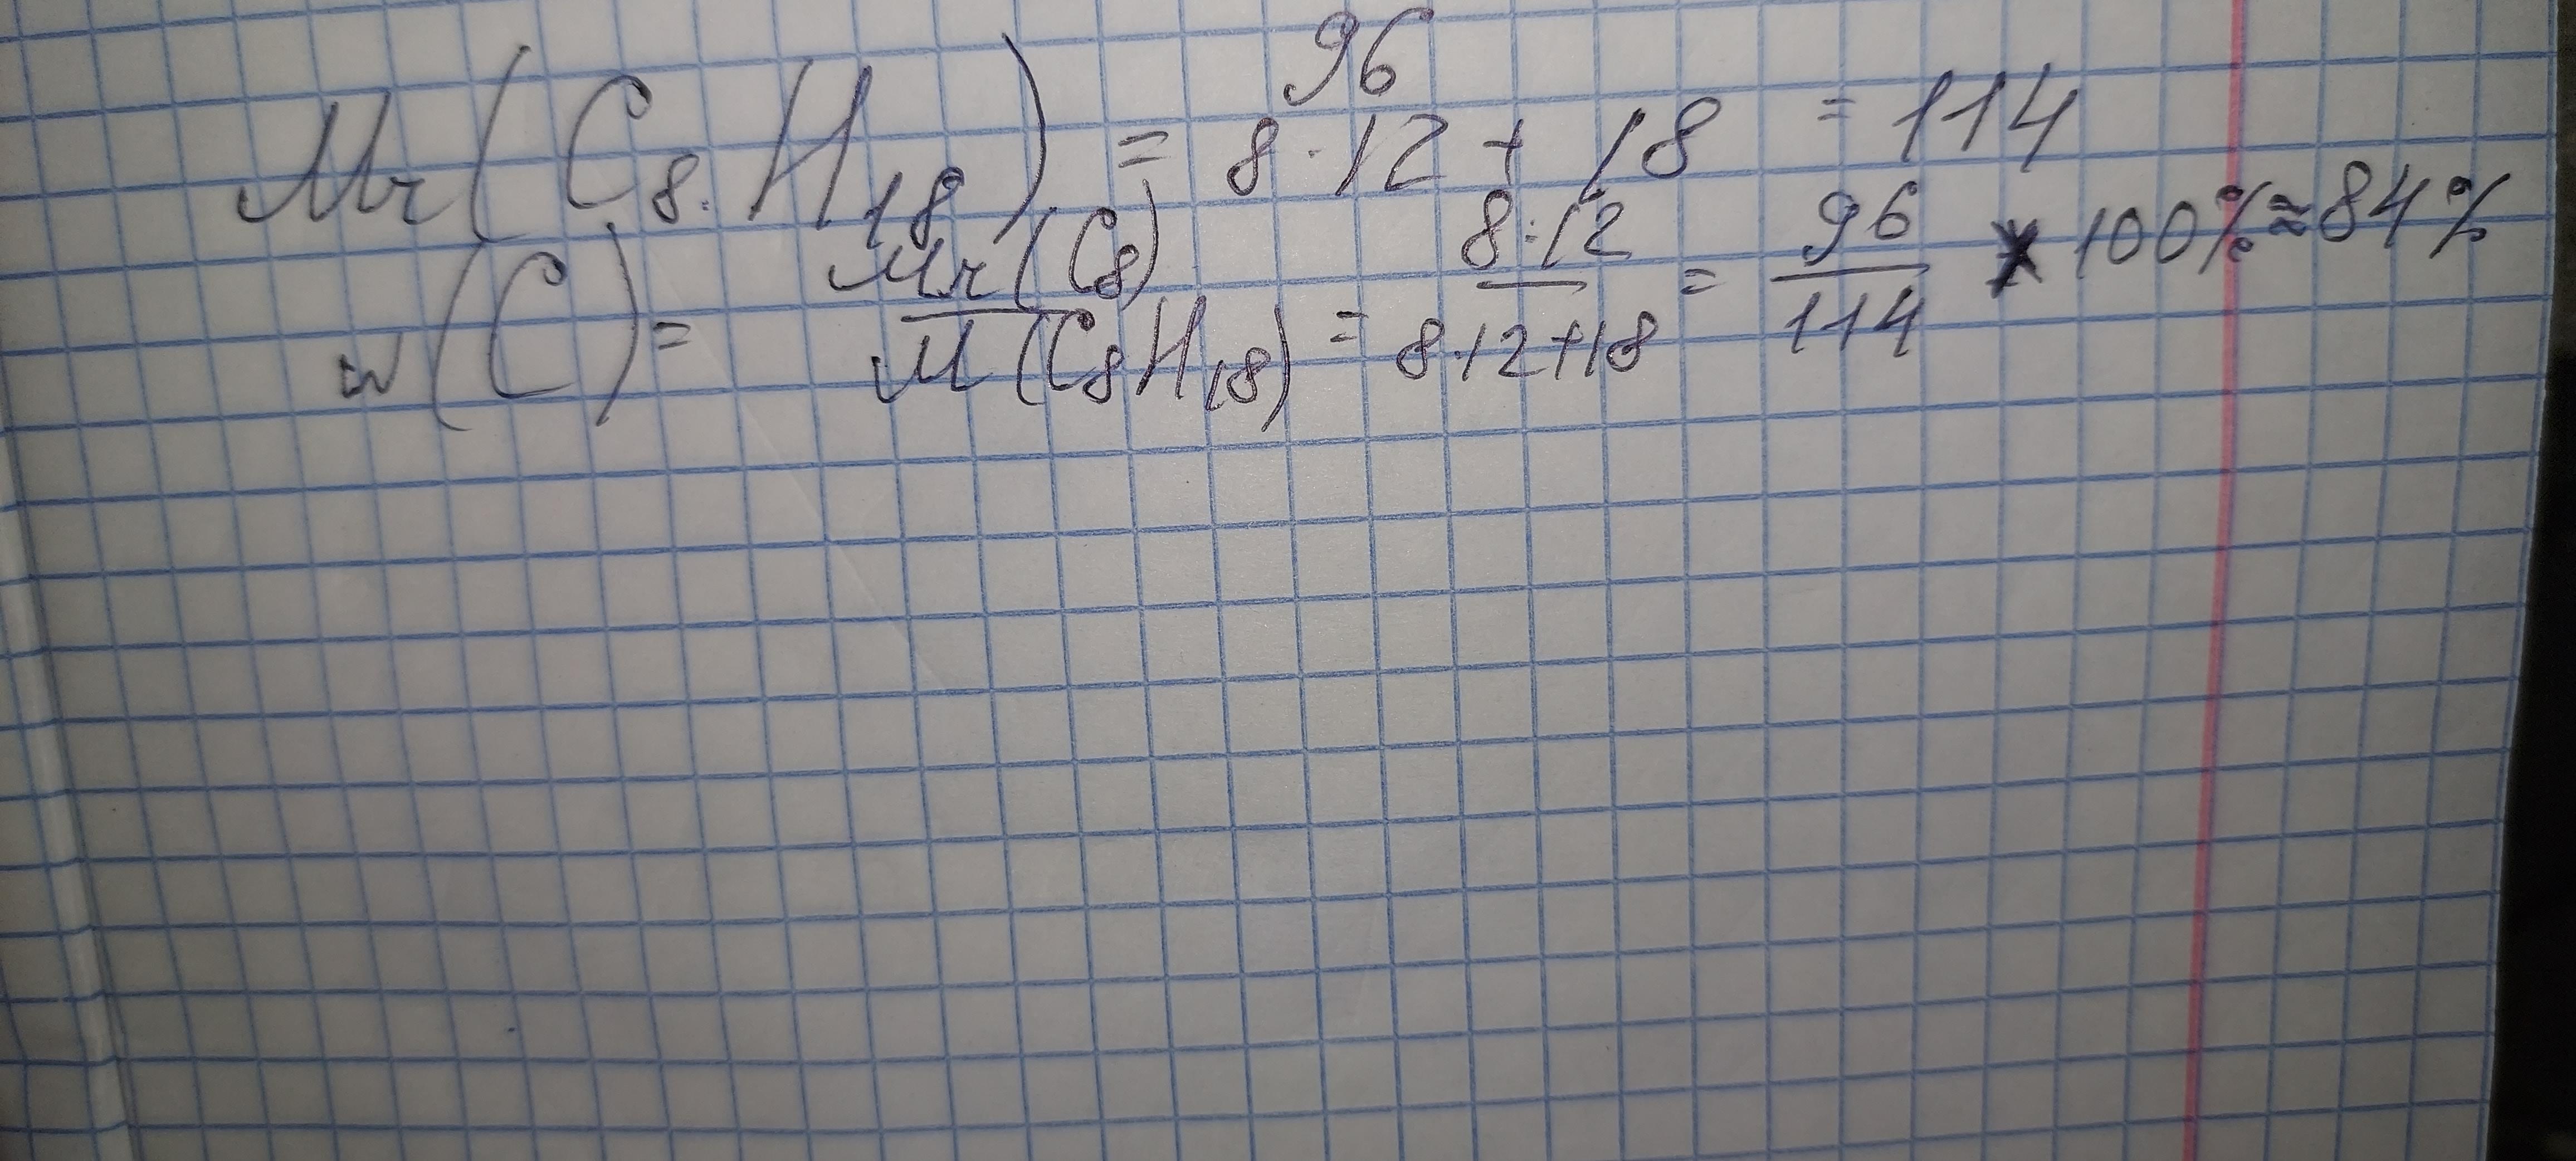 96
Mr(C₈H₁₈) = 8·12 + 18 = 114
w(C) = Mr(C₈) / M(C₈H₁₈) = 8·12 / 8·12+18 = 96 / 114 * 100% ≈ 84%